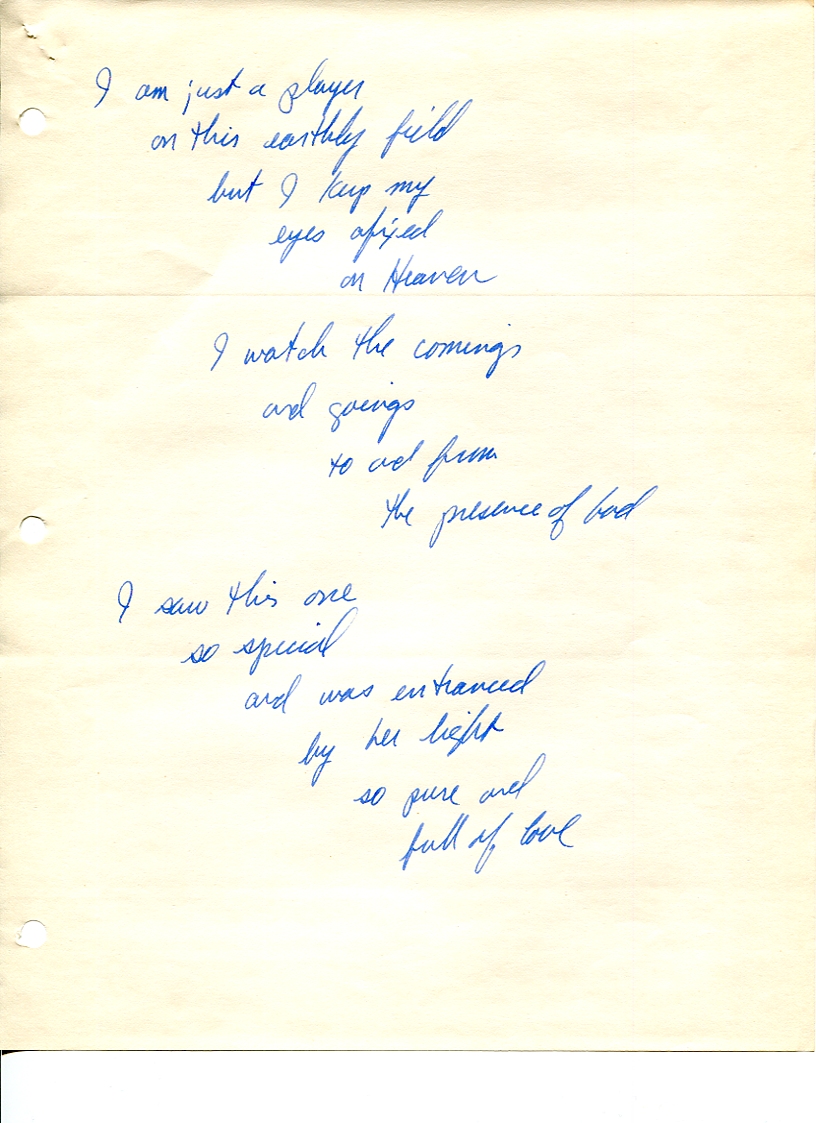 I am just a player
on this earthly field
but I keep my
eyes afixed
on Heaven
I watch the comings
and goings
to and from
the presence of God
I saw this one
so special
and was entranced
by her light
so pure and
full of love